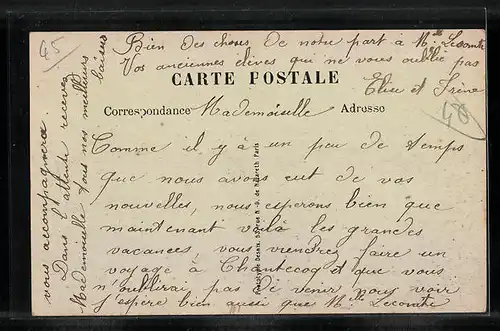 Bien des choses de notre part à Mlle Lecomte
Vos anciennes élèves qui ne vous oublie pas
Elise et Irène
CARTE POSTALE
Correspondance Mademoiselle Adresse
Comme il y à un peu de temps
que nous avons eut de vos
nouvelles, nous espérons bien que
maintenant voilà les grandes
vacances, vous viendrez faire un
voyage à Chantecoq et que vous
n'oublirai pas de venir nous voir
J'espère bien aussi que Mlle Lecomte
vous accompagnera.
Dans l'attente recevez
Mademoiselle tous nos meilleurs
baisers
45
48
Desaix, rue N.-D. de Nazareth Paris